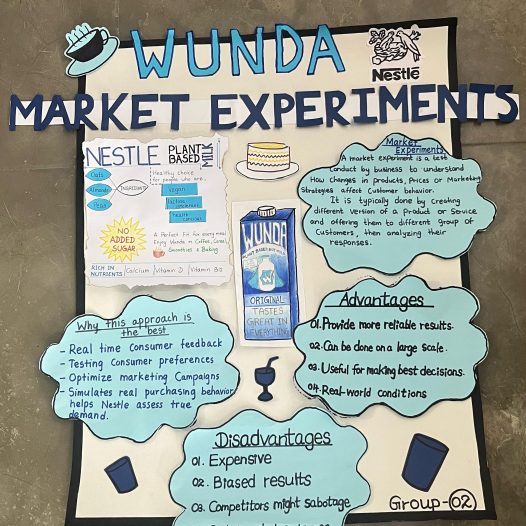 WUNDA
Nestlé
MARKET EXPERIMENTS
NESTLE PLANT BASED MILK
Oats
Almonds
Peas
INGREDIENTS
Healthy choice
for people who are..
vegan
lactose
intolerant
health
conscious
NO
ADDED
SUGAR
A Perfect Fit for every meal
Enjoy Wunda in Coffee, Cereal,
Smoothies & Baking
RICH IN
NUTRIENTS
Calcium
Vitamin D
Vitamin B12
WUNDA
PLANT BASED
ORIGINAL
TASTES
GREAT IN
EVERYTHING
Market
Experiments
A market experiment is a test
Conduct by business to understand
How changes in Products, Prices or Marketing
Strategies affect Customer behavior.
It is typically done by creating
different version of a Product or Service
and offering them to different Group of
Customers, then analyzing their
responses.
Advantages
01. Provide more reliable results.
02. Can be done on a large scale.
03. Useful for making best decisions.
04. Real-world conditions
Why this approach is
the best
- Real time Consumer feedback
- Testing Consumer preferences
- Optimize marketing Campaigns
- Simulates real purchasing behavior
helps Nestle assess true
demand.
Disadvantages
01. Expensive
02. Biased results
03. Competitors might sabotage
Group-02